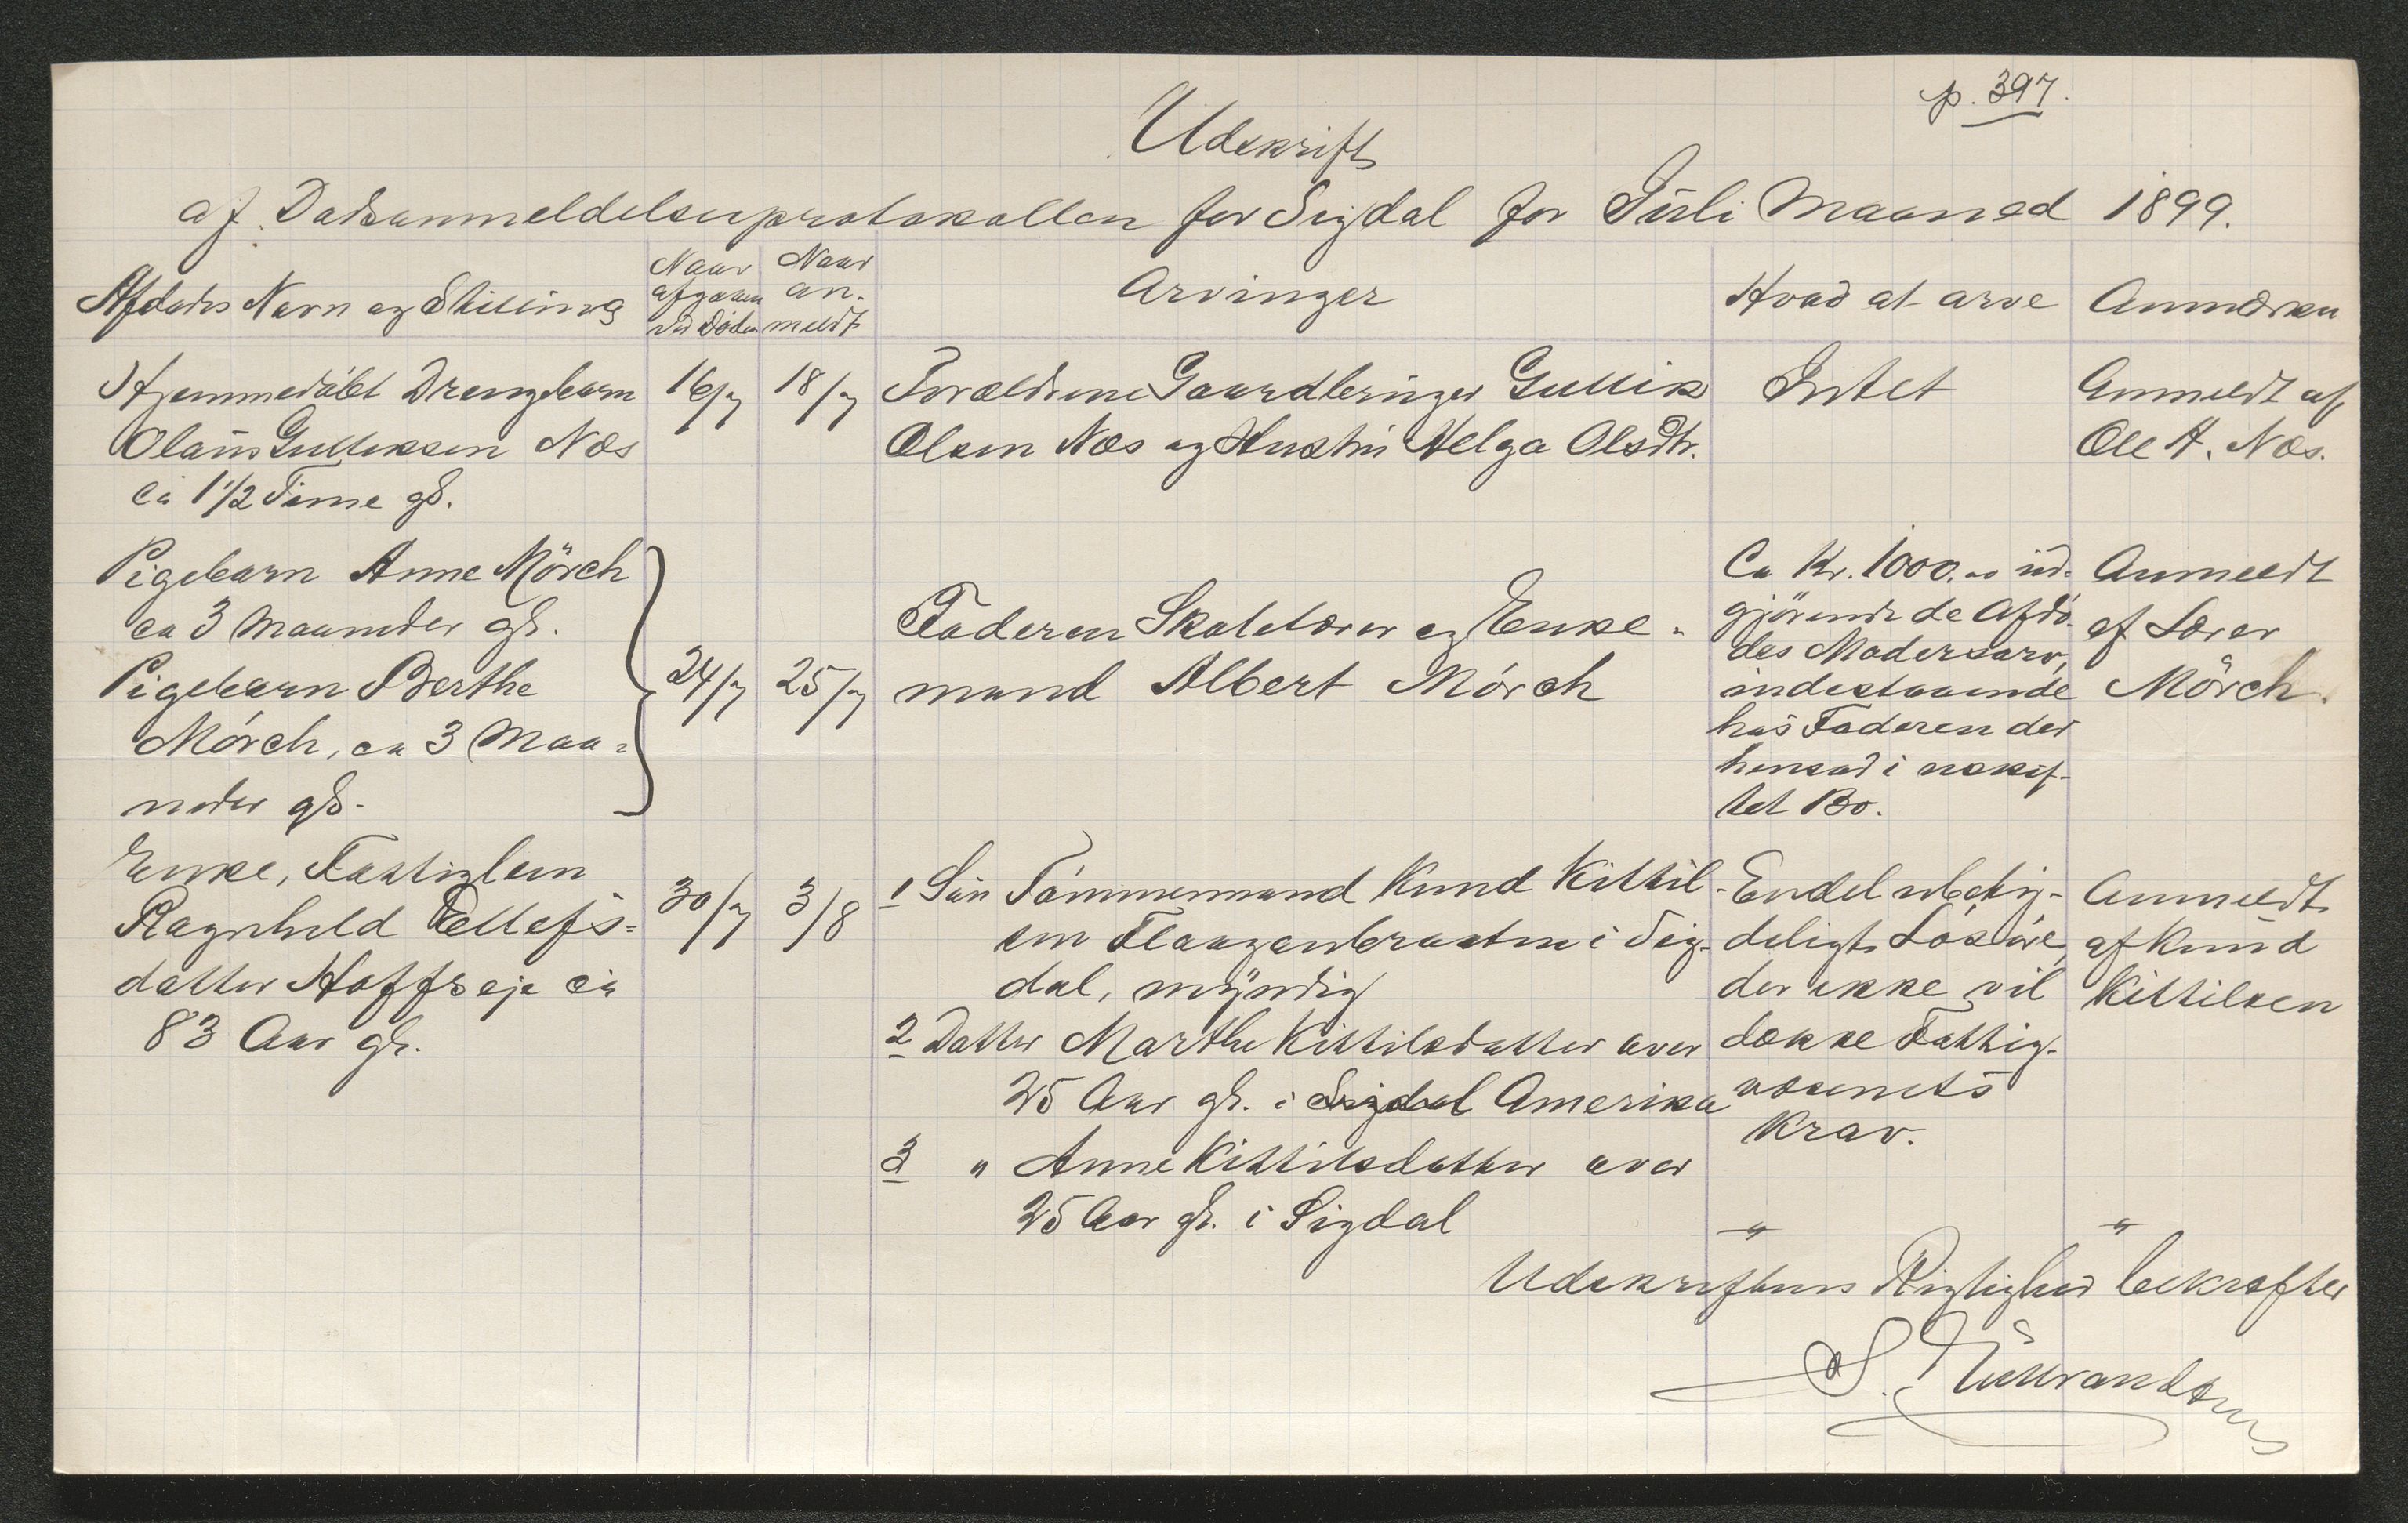 p. 397.
Udskrift
af Dødsanmeldelsesprotokollen for Sigdal for Juli Maaned 1899.
Afdødes Navn og Stilling
Naar
afgaaen
ved Døden
Naar
an-
meldt
Arvinger
Hvad at arve
Anmærkn
Hjemmedøbt Drengebarn
Olaus Gulliksen Næs
ca 1 1/2 Time gl.
16/7
18/7
Forældrene Gaardbruger Gullik
Olsen Næs og Hustru Helga Olsdtr.
Intet
Anmeldt af
Ole H. Næs.
Pigebarn Anne Mörch
ca 3 Maaneder gl.
Pigebarn Berthe
Mörch, ca 3 Maa-
neder gl.
24/7
25/7
Faderen Skolelærer og Enke-
mand Albert Mörch
Ca Kr. 1000.00 ud-
gjörende de Afdö-
des Mødrearv,
indestaaende
hos Faderen der
hensad i uskif-
tet Bo.
Anmeldt
af Lærer
Mörch.
Enke, Fattiglem
Ragnhild Tellefs-
datter Hoffseje ca
83 Aar gl.
30/7
3/8
1 Sön Tömmermand Knud Kittil-
sen Flaagenbraaten i Sig-
dal, myndig
2 Datter Marthe Kittilsdatter over
25 Aar gl. i Sigdal Amerika
3 " Anne Kittilsdatter over
25 Aar gl. i Sigdal
Endel ubetÿ-
deligt Lösöre,
der ikke vil
dække Fattig-
væsenets
Krav.
Anmeldt
af Knud
Kittilsen
-"-
-"-
Udskriftens Rigtighed bekræfter